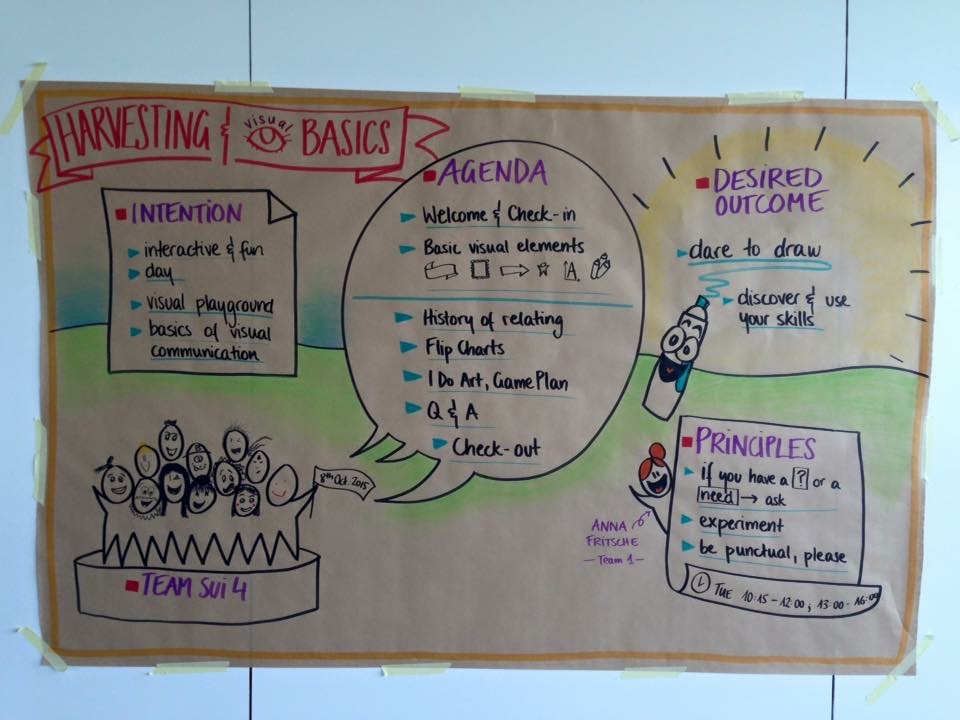 HARVESTING & visual BASICS
INTENTION
interactive & fun
day
visual playground
basics of visual
communication
AGENDA
Welcome & Check-in
Basic visual elements
A
History of relating
Flip Charts
I Do Art, Game Plan
Q & A
Check-out
DESIRED
OUTCOME
dare to draw
discover & use
your skills
8th Oct. 2015
TEAM SUi 4
PRINCIPLES
if you have a ? or a
need → ask
experiment
be punctual, please
TUE 10:15 - 12:00; 13:00 - 16:00
ANNA
FRITSCHE
- Team 1 -